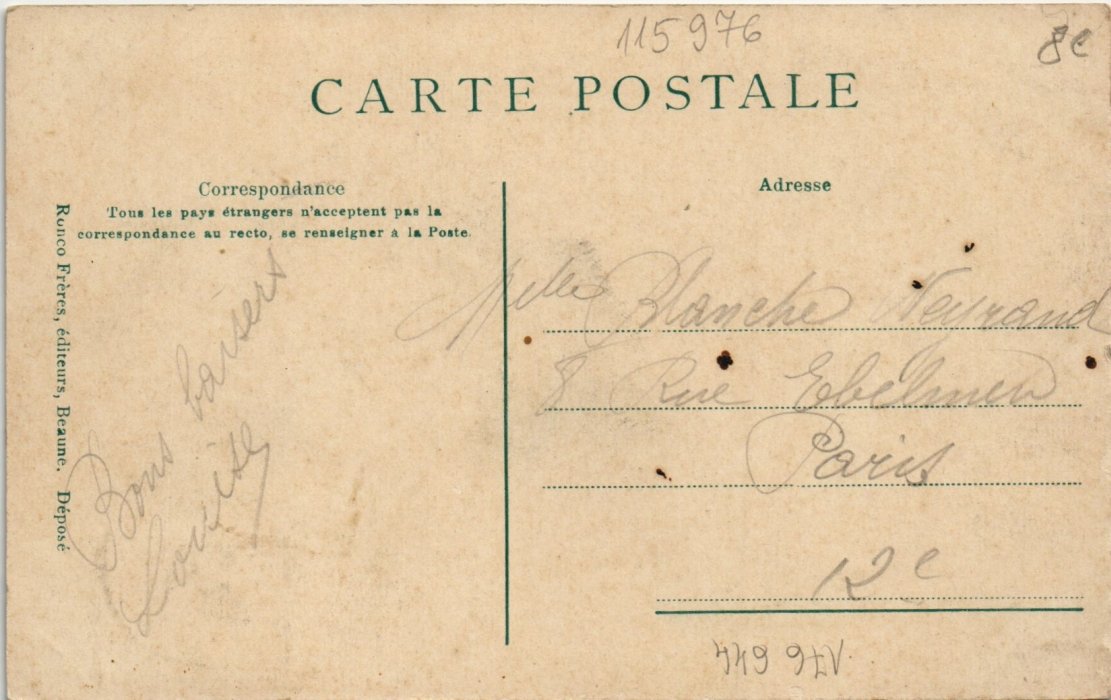 115 976
8e
CARTE POSTALE
Correspondance
Tous les pays étrangers n'acceptent pas la
correspondance au recto, se renseigner à la Poste.
Ronco Frères, éditeurs, Beaune. Déposé
Bons baisers
Louise
Adresse
Melle Blanche Neyrand
8 Rue Ebelmen
Paris
12e